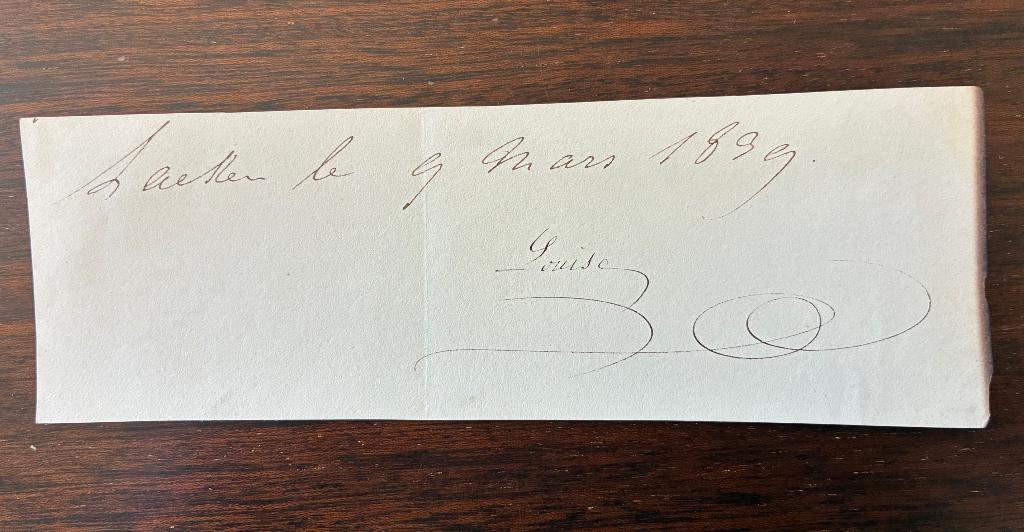 Laeken le 9 Mars 1839.
Louise